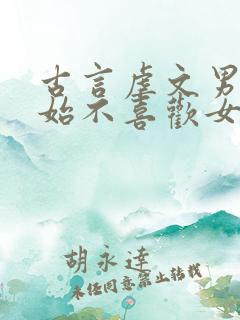 古言虐文男
始不喜歡女
胡永達
未经同意禁止转载